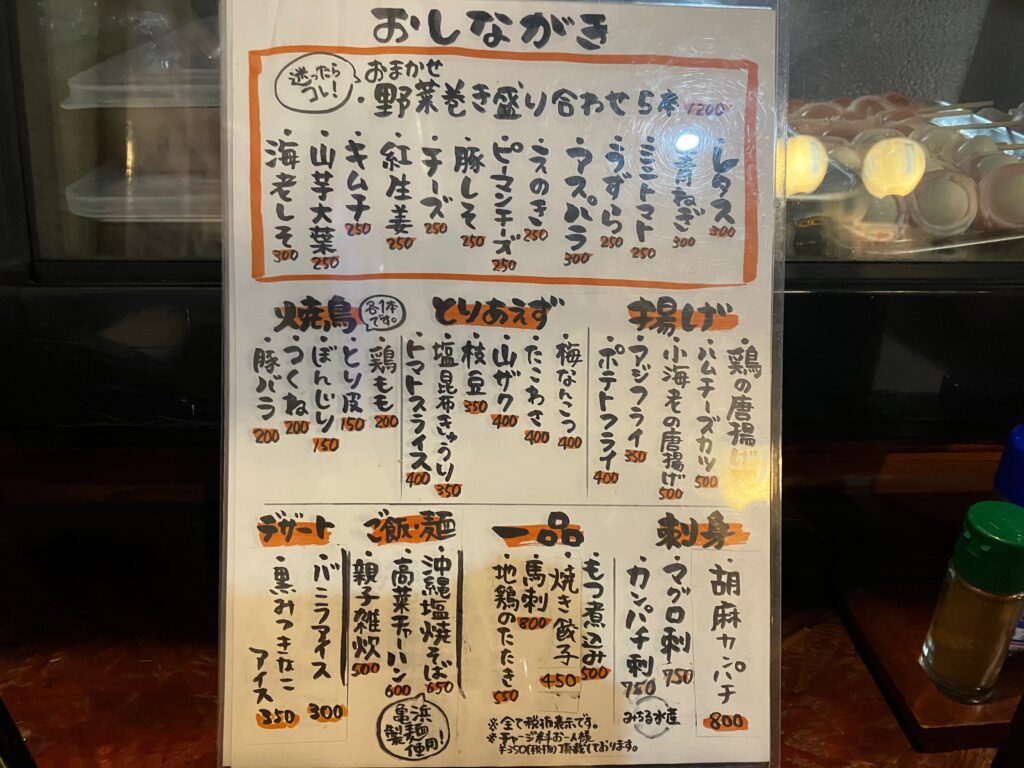 おしながき
迷ったらコレ！
おまかせ
・野菜巻き盛り合わせ5本 1200
・レタス 300
・青ねぎ 300
・ミニトマト 250
・うずら 250
・アスパラ 300
・えのき 250
・ピーマンチーズ 250
・豚しそ 250
・チーズ 250
・紅生姜 250
・キムチ 250
・山芋大葉 250
・海老しそ 300
揚げ
・鶏の唐揚げ
・ハムチーズカツ 500
・小海老の唐揚げ 500
・アジフライ 350
・ポテトフライ 400
とりあえず
・梅なんこつ 400
・たこわさ 400
・山ザク 400
・枝豆 350
・塩昆布きゅうり 350
・トマトスライス 400
焼鳥
各1本です。
・鶏もも 200
・とり皮 150
・ぼんじり 150
・つくね 200
・豚バラ 200
刺身
・胡麻カンパチ 800
・マグロ刺 750
・カンパチ刺 750
みちる水産
一品
・もつ煮込み 500
・焼き餃子 450
・馬刺 800
・地鶏のたたき 550
ご飯・麺
・沖縄塩焼そば 650
・高菜チャーハン 600
・親子雑炊 500
亀浜製麺使用！
デザート
・バニラアイス 300
・黒みつきなこアイス 350
※全て税抜表示です。
※チャージ料お一人様
¥350(税抜)頂戴しております。